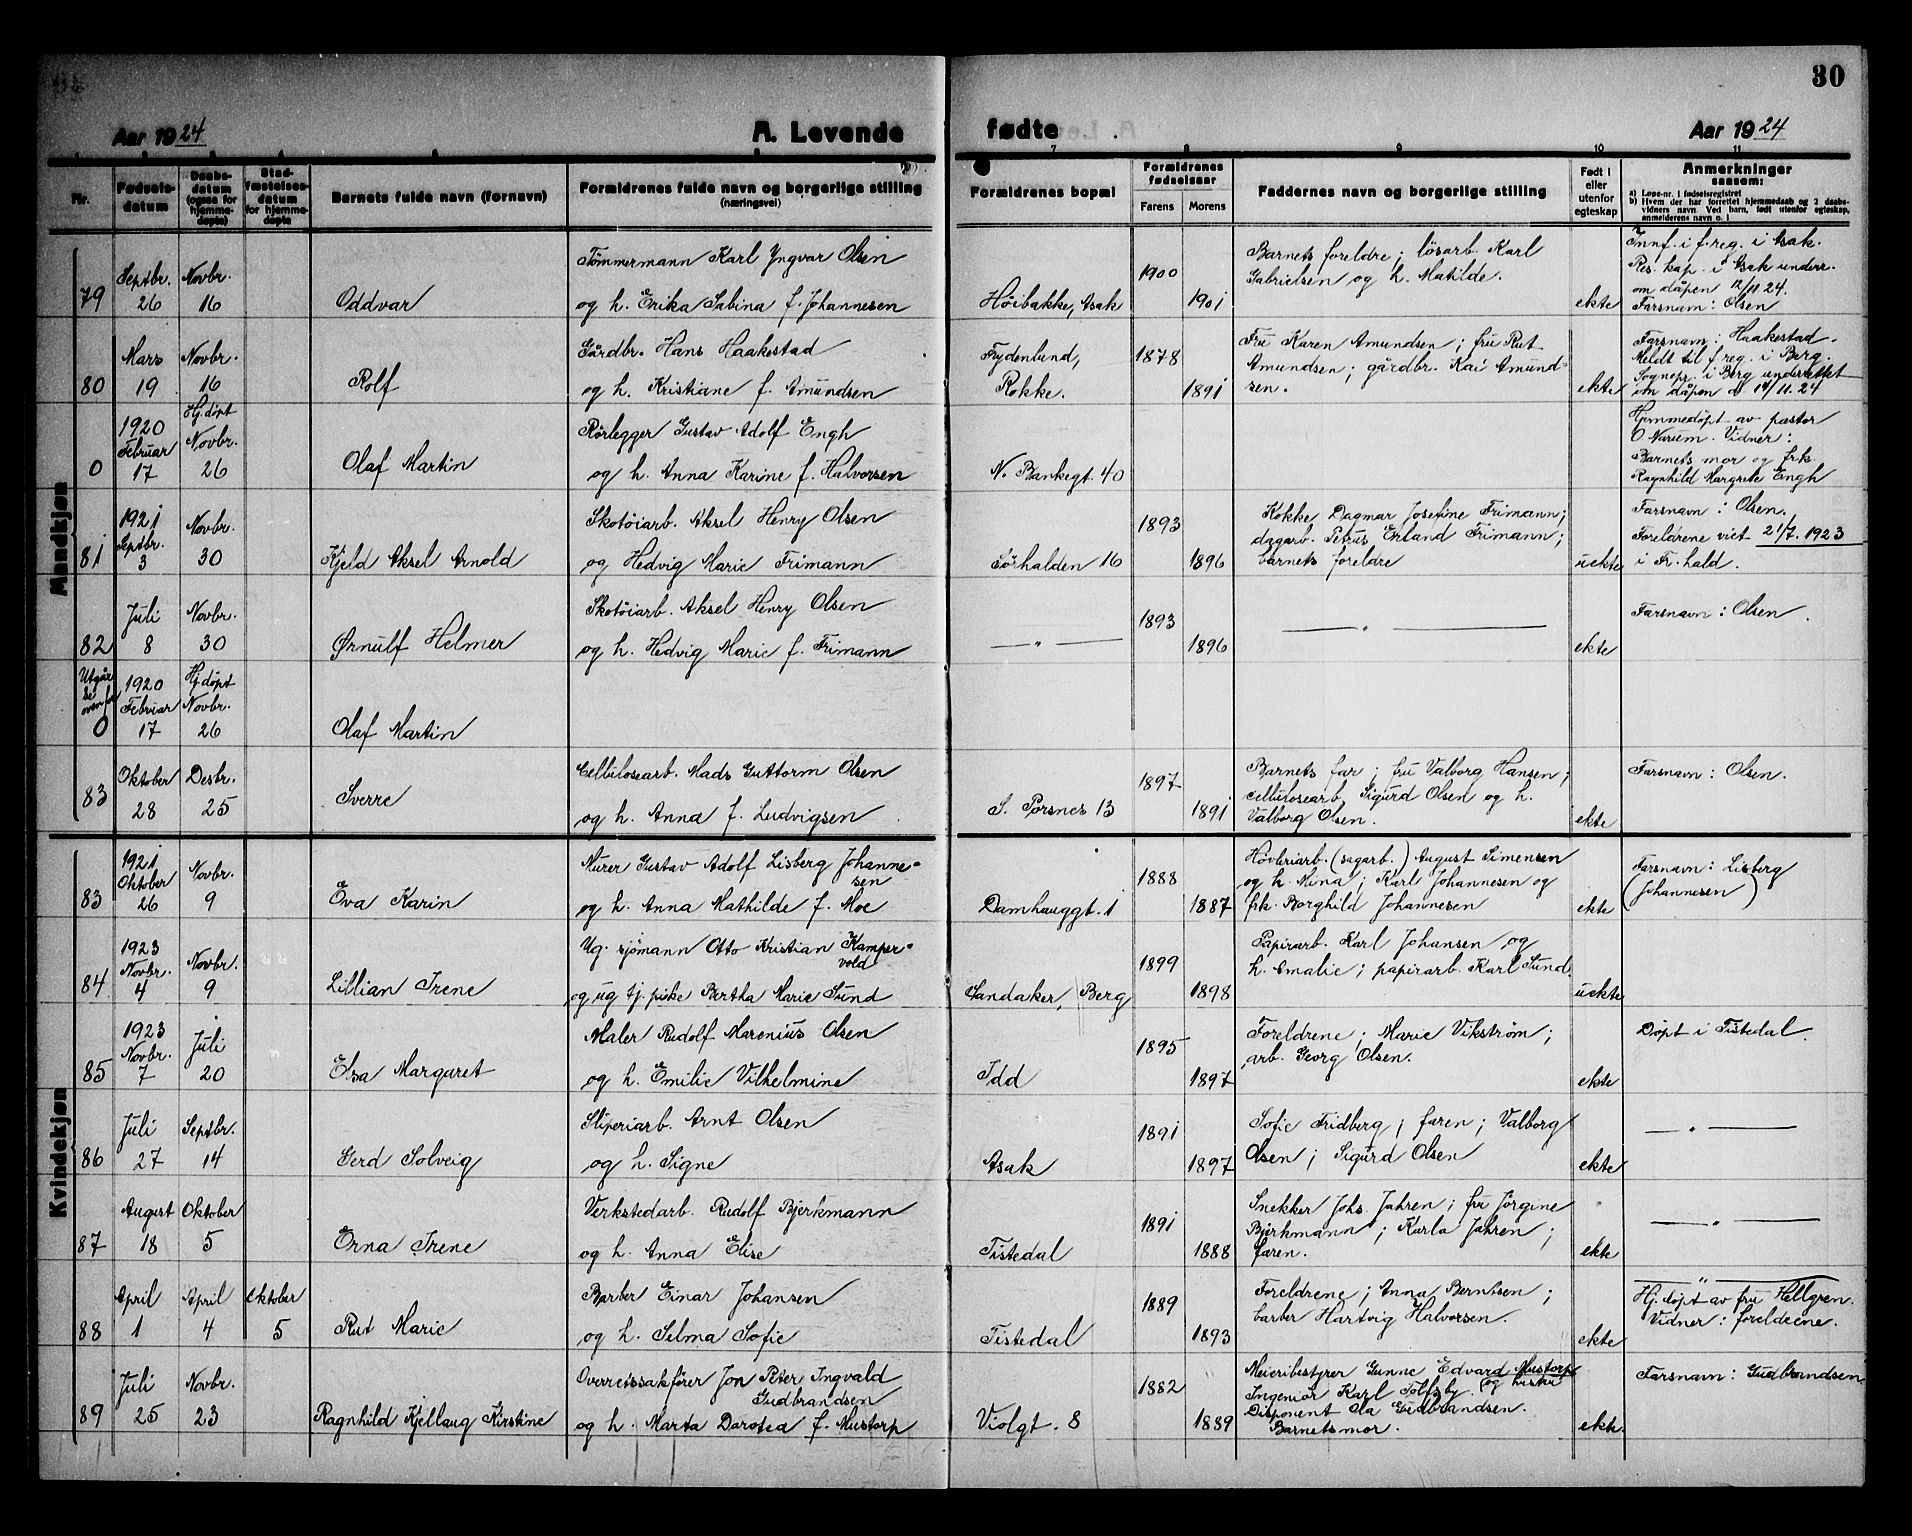 30
Aar 1924
A. Levende
fødte
Aar 1924
Nr.
Fødsels-
datum
Daabs-
datum
(ogsaa for
hjemme-
døpte)
Stad-
fæstelses-
datum
for hjemme-
døpte
Barnets fulde navn (fornavn)
Forældrenes fulde navn og borgerlige stilling
(næringsvei)
7
8
9
10
11
Forældrenes bopæl
Forældrenes
fødselsaar
Farens
Morens
Faddernes navn og borgerlige stilling
Født i
eller
utenfor
egteskap
Anmerkninger
saasom:
a) Løpe-nr. i fødselsregistret
b) Hvem der har forrettet hjemmedaab og 2 daabs-
vidners navn Ved barn, født utenfor egteskap,
anmelderens navn o. l
Mandkjøn
79
Septbr.
26
Novbr.
16
Oddvar
Tømmermann Karl Yngvar Olsen
og h. Erika Sabina f. Johannesen
Høibakke, Asak
1900
1901
Barnets foreldre; løsarb. Karl
Gabrielsen og h. Matilde.
ekte
Innf. i f.reg. i Asak.
Res. kap. i Asak underr.
om dåpen 12/11 24.
Farsnavn: Olsen
80
Mars
19
Novbr.
16
Rolf
Gårdbr. Hans Haakestad
og h. Kristiane f. Amundsen
Frydenlund,
Rokke.
1878
1891
Fru Karen Amundsen; fru Rut
Amundsen; gårdbr. Kai Amund-
sen.
ekte
Farsnavn: Haakestad.
Meldt til f.reg. i Berg.
Sognepr. i Berg underrettet
om dåpen d 14/11. 24
0
1920
Februar
17
Hj.døpt
Novbr.
26
Olaf Martin
Rørlegger Gustav Adolf Engh
og h. Anna Karine f. Halvorsen
N. Bankegt. 40
Hjemmedøpt av pastor
O Narum. Vidner:
Barnets mor og frk.
Ragnhild Margrete Engh
81
1921
Septbr.
3
Novbr.
30
Kjeld Aksel Arnold
Skotøiarb. Aksel Henry Olsen
og Hedvig Marie Frimann
Sørhalden 16
1893
1896
Kokke Dagmar Josefine Frimann;
dagarb. Petrus Erland Frimann;
barnets foreldre
uekte
Farsnavn: Olsen.
Foreldrene viet 21/7. 1923
i Fr.hald.
82
Juli
8
Novbr.
30
Ørnulf Helmer
Skotøiarb. Aksel Henry Olsen
og h. Hedvig Marie f. Frimann
— " —
1893
1896
— " —
ekte
Farsnavn: Olsen.
Utgår
se
ovenfor
0
1920
Februar
17
Hj.døpt
Novbr.
26
Olaf Martin
83
Oktober
28
Desbr.
25
Sverre
Cellulosearb. Mads Guttorm Olsen
og h. Anna f. Ludvigsen
S. Porsnes 13
1897
1891
Barnets far; fru Valborg Hansen;
cellulosearb. Sigurd Olsen og h.
Valborg Olsen.
ekte
Farsnavn: Olsen.
Kvindekjøn
83
1921
Oktober
26
Novbr.
9
Eva Karin
Murer Gustav Adolf Lisberg Johanne-
sen
og h. Anna Mathilde f. Moe
Damhauggt. 1
1888
1887
Høvleriarb. (sagarb.) August Simensen
og h. Mina; Karl Johannesen og
frk. Borghild Johannesen
ekte
Farsnavn: Lisberg
(Johannesen)
84
1923
Novbr.
4
Novbr.
9
Lillian Irene
Ug. sjømann Otto Kristian Kamper-
vold
og ug tj.pike Bertha Marie Sund
Sandaker, Berg
1899
1898
Papirarb. Karl Johansen og
h. Amalie; papirarb. Karl Sund.
uekte
85
1923
Novbr.
7
Juli
20
Elsa Margaret
Maler Rudolf Marenius Olsen
og h. Emilie Vilhelmine
Idd
1895
1897
Foreldrene; Marie Vikstrøm;
arb. Georg Olsen.
ekte
Døpt i Tistedal.
86
Juli
27
Septbr.
14
Gerd Solveig
Sliperiarb. Arnt Olsen
og h. Signe
Asak
1891
1897
Sofie Fridberg; faren; Valborg
Olsen; Sigurd Olsen
ekte
— " —
87
August
18
Oktober
5
Erna Irene
Verkstedarb. Rudolf Bjerkmann
og h. Anna Elise
Tistedal
1891
1888
Snekker Johs. Jahren; fru Jørgine
Bjerkmann; Karla Jahren;
faren.
ekte
— " —
88
April
1
April
4
Oktober
5
Rut Marie
Barber Einar Johansen
og h. Selma Sofie
Tistedal
1889
1893
Foreldrene; Anna Berntsen;
barber Hartvig Halvorsen.
ekte
— " —
Hj.døpt av fru Hellgren.
Vidner: foreldrene.
89
Juli
25
Novbr.
23
Ragnhild Kjellaug Kirstine
Overretssakfører Jon Peter Ingvald
Gudbrandsen
og h. Marta Dorotea f. Mustorp
Violgt. 8
1882
1889
Meieribestyrer Gunne Edvard Mustorp
og hustru
Ingeniør Karl Tolfsby.
Disponent Ola Gudbrandsen.
Barnets mor.
ekte.
Farsnavn: Gudbrandsen